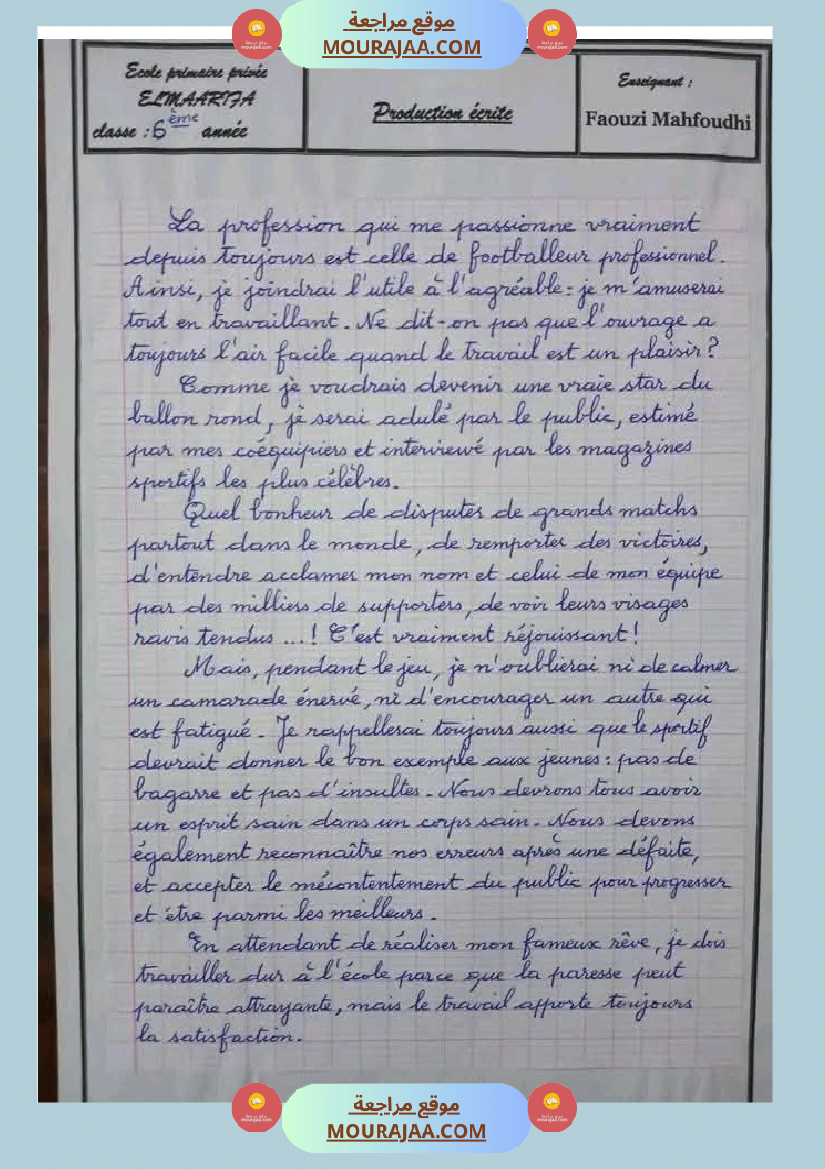 موقع مراجعة
MOURAJAA.COM
Ecole primaire privée
ELMAARIFA
classe : 6ème année
Production écrite
Enseignant :
Faouzi Mahfoudhi
La profession qui me passionne vraiment
depuis toujours est celle de footballeur professionnel.
Ainsi, je joindrai l'utile à l'agréable : je m'amuserai
tout en travaillant. Ne dit-on pas que l'ouvrage a
toujours l'air facile quand le travail est un plaisir ?
Comme je voudrais devenir une vraie star du
ballon rond, je serai adulé par le public, estimé
par mes coéquipiers et interviewé par les magazines
sportifs les plus célèbres.
Quel bonheur de disputer de grands matchs
partout dans le monde, de remporter des victoires,
d'entendre acclamer mon nom et celui de mon équipe
par des milliers de supporters, de voir leurs visages
ravis tendus ...! C'est vraiment réjouissant !
Mais, pendant le jeu, je n'oublierai ni de calmer
un camarade énervé, ni d'encourager un autre qui
est fatigué. Je rappellerai toujours aussi que le sportif
devrait donner le bon exemple aux jeunes : pas de
bagarre et pas d'insultes. Nous devrons tous avoir
un esprit sain dans un corps sain. Nous devons
également reconnaître nos erreurs après une défaite,
et accepter le mécontentement du public pour progresser
et être parmi les meilleurs.
En attendant de réaliser mon fameux rêve, je dois
travailler dur à l'école parce que la paresse peut
paraître attrayante, mais le travail apporte toujours
la satisfaction.
موقع مراجعة
MOURAJAA.COM